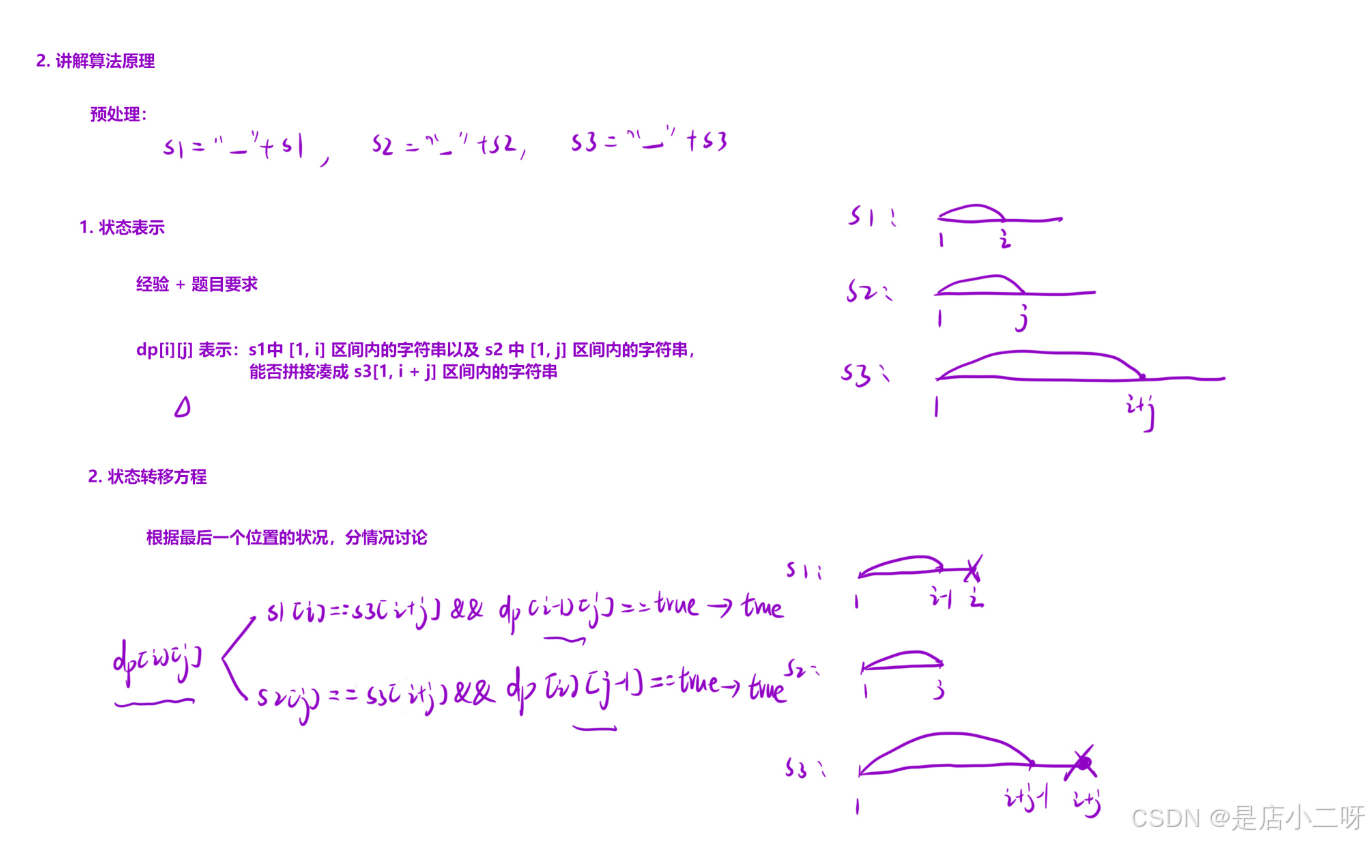 2. 讲解算法原理
预处理：
s1 = "_" + s1 , s2 = "_" + s2, s3 = "_" + s3
1. 状态表示
经验 + 题目要求
dp[i][j] 表示：s1中 [1, i] 区间内的字符串以及 s2 中 [1, j] 区间内的字符串，
能否拼接凑成 s3[1, i + j] 区间内的字符串
Δ
s1:
1 i
s2:
1 j
s3:
1 i+j
2. 状态转移方程
根据最后一个位置的状况，分情况讨论
dp[i][j]
s1[i] == s3[i+j] && dp[i-1][j] == true → true
s2[j] == s3[i+j] && dp[i][j-1] == true → true
s1:
1 i-1 i
s2:
1 j
s3:
1 i+j-1 i+j
CSDN @是店小二呀